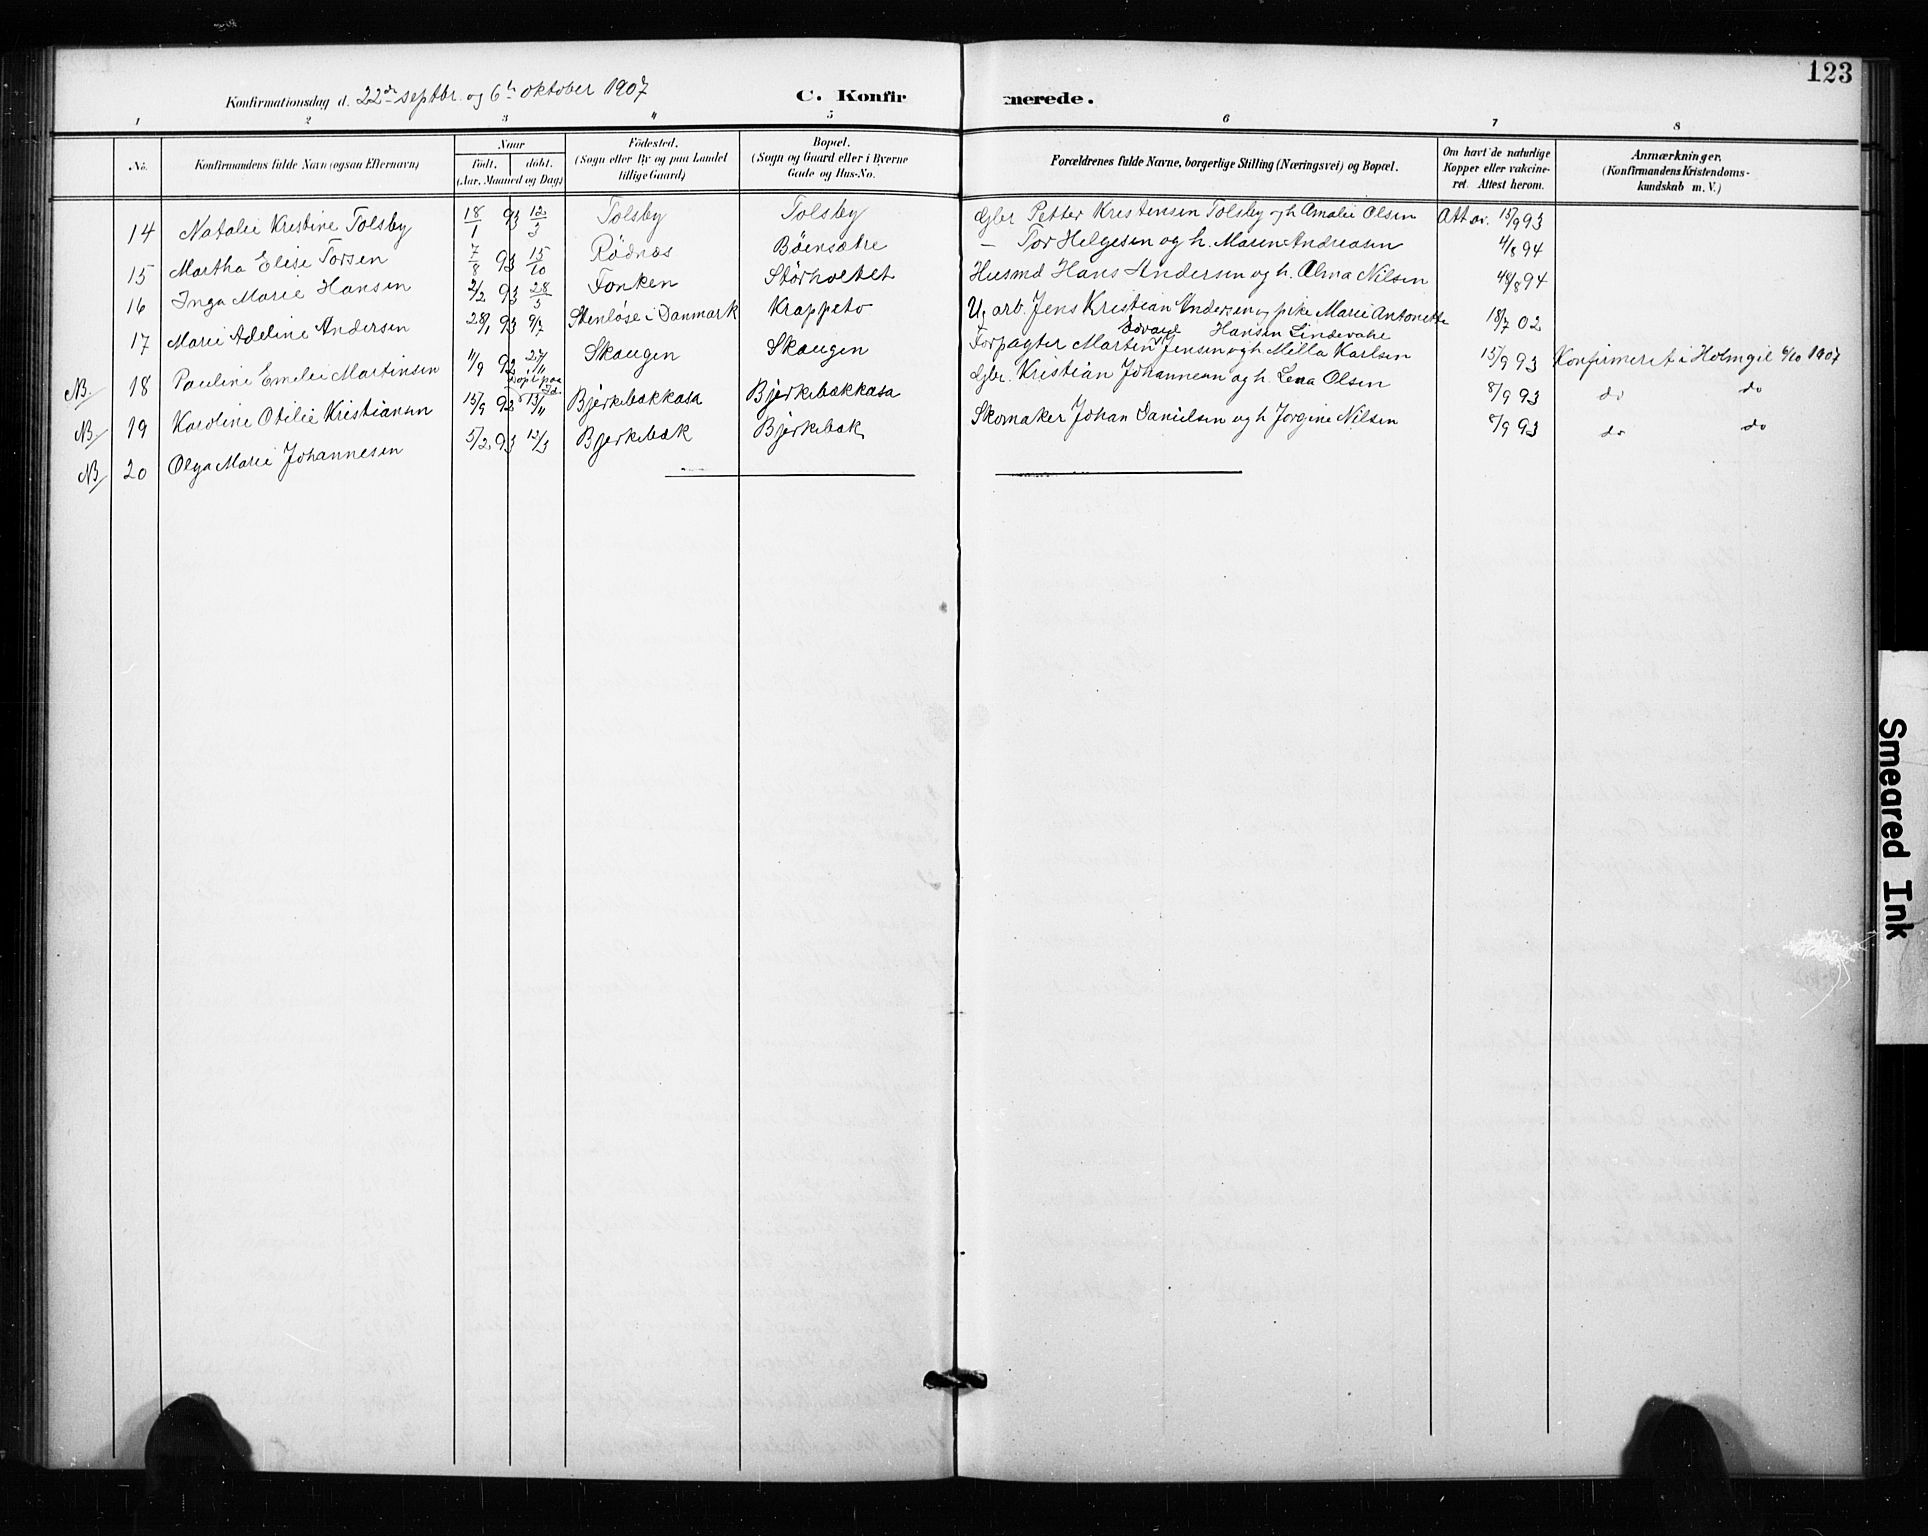 123
Konfirmationsdag d. 22de septbr. og 6te oktober 1907 C. Konfirmerede.
1 2 3 4 5 6 7 8
No. Konfirmandens fulde Navn (ogsaa Efternavn) Naar født. døbt. (Aar, Maaned og Dag) Fødested. (Sogn eller By og paa Landet tillige Gaard) Bopæl. (Sogn og Gaard eller i Byerne Gade og Hus-No. Forældrenes fulde Navne, borgerlige Stilling (Næringsvei) og Bopæl. Om havt de naturlige Kopper eller vakcineret. Attest herom. Anmærkninger. (Konfirmandens Kristendomskundskab m. V.)
14 Natalie Kristine Tolsby 18/1 93 12/3 Tolsby Tolsby Gbr. Petter Kristensen Tolsby og h. Amalie Olsen Att av. 15/9 93
15 Martha Elise Torsen 7/8 93 15/10 Rødnæs Bøensætre – Tor Helgesen og h. Maren Andreasen 4/8 94
16 Inga Marie Hansen 2/2 93 28/5 Fonken Størholtet Husmd Hans Andersen og h. Alma Nilsen 4/8 94
17 Marie Adeline Andersen 28/1 93 9/7 Stenløse i Danmark Krappeto U, arb. Jens Kristian Andersen og pike Marie Antonette Hansen Lindevahe 18/7 02
NB. 18 Pauline Emelie Martinsen 11/9 92 27/11 Skaugen Skaugen Forpagter Martin Edvard Jensen og h. Milla Karlsen 15/9 93 Konfirmeret i Holmgil 6/10 1907
NB/ 19 Karoline Otilie Kristiansen 15/9 92 Døpt paa 13/11 Bjerkebakkasa Bjerkebakkasa Gbr. Kristian Johannesen og h. Lena Olsen 8/9 93 do do
NB/ 20 Olga Marie Johannesen 5/2 93 12/3 Bjerkebæk Bjerkebæk Skomaker Johan Danielsen og h Jorgine Nilsen 8/9 93 do do
Smeared Ink